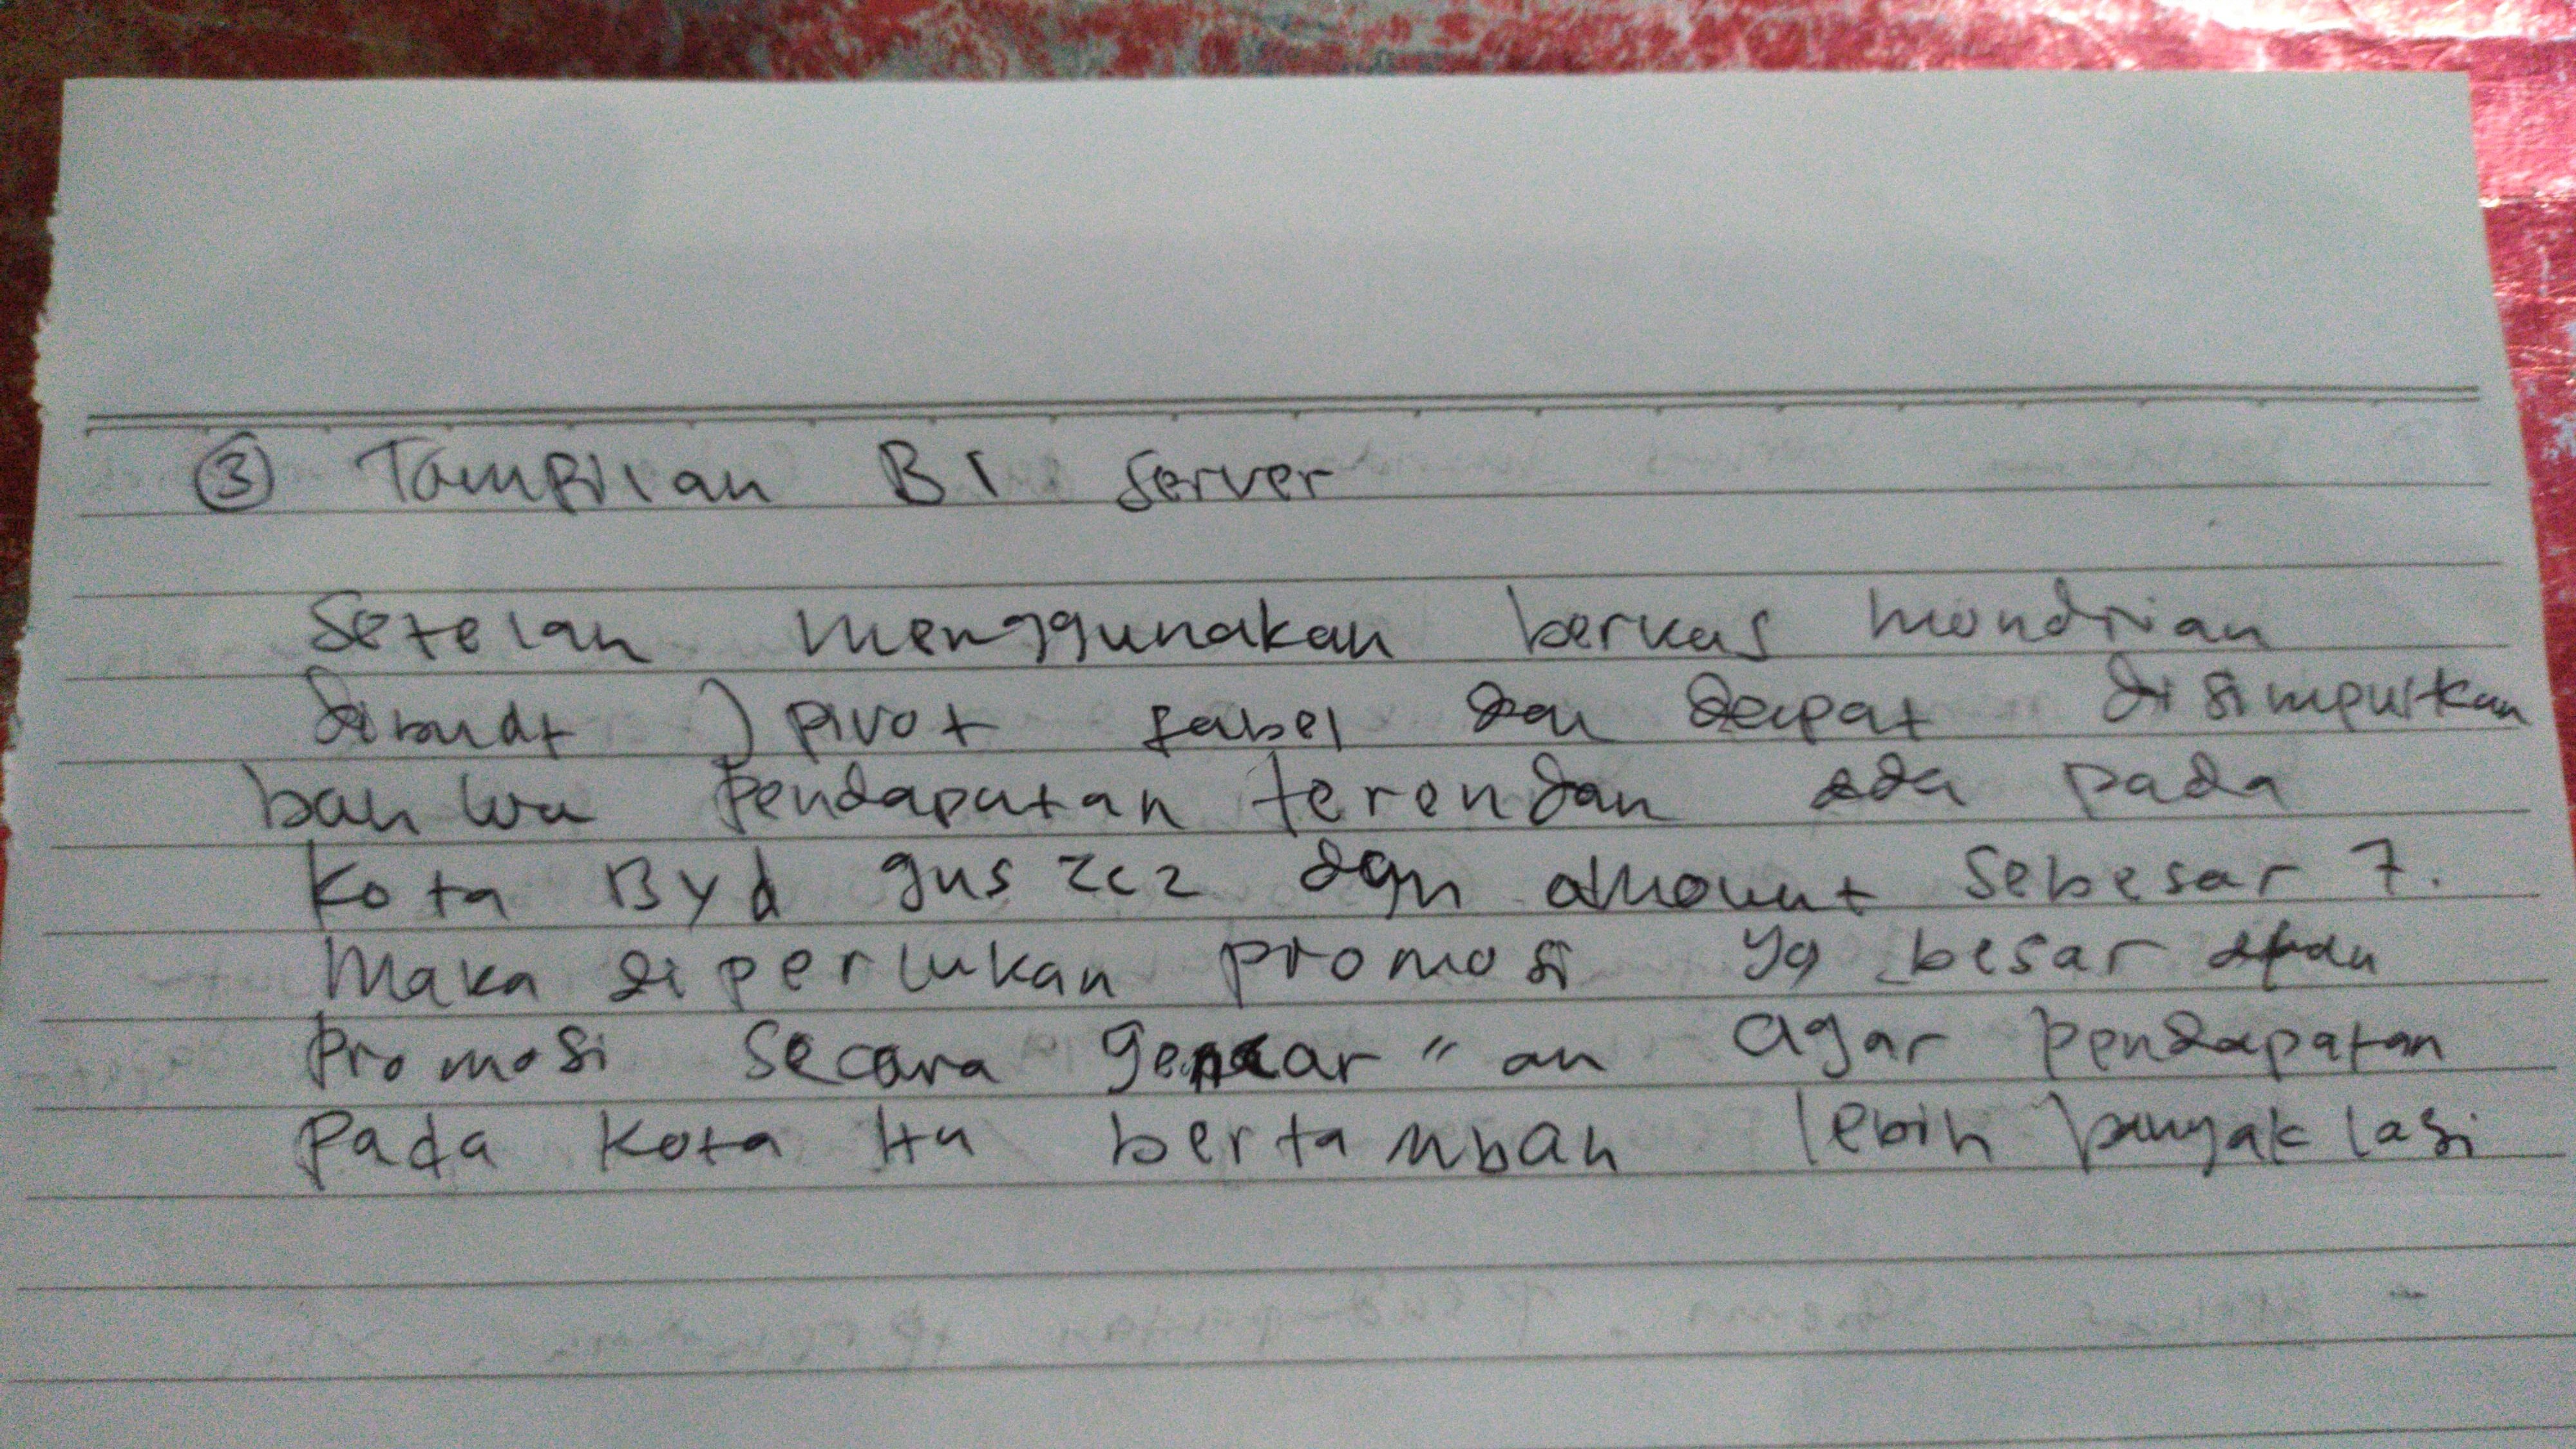 ③ Tampilan BI Server
Setelah menggunakan berkas mondrian
dibuat Jpivot tabel dan dapat disimpulkan
bahwa pendapatan terendah ada pada
Kota Bydguszcz dgn amount sebesar 7.
Maka diperlukan promosi yg besar
Promosi secara gencar " an agar pendapatan
pada kota itu bertambah lebih banyak lagi